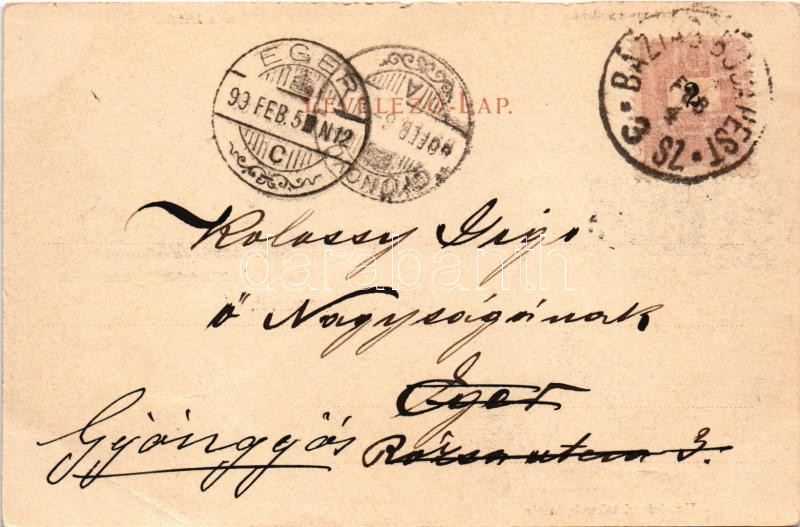 EGER
99 FEB. 5 N12
C
GYÖNGYÖS
A
LEVELEZŐ-LAP.
BAZIÁS BUDAPEST
FEB
4
SZ 3
2
Kolossy Gizi
ő Nagyságának
Eger
Gyöngyös Rózsa utca 3.
darabanth